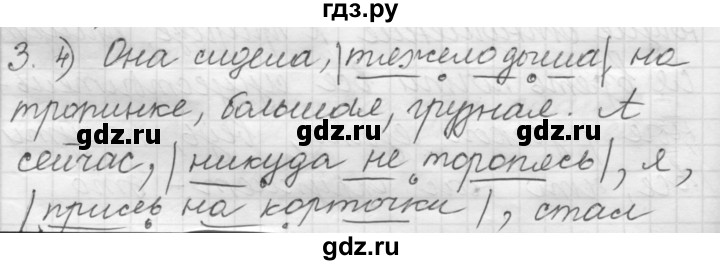 гдз.ру
3. 4) Она сидела, |тяжело дыша|, на
тропинке, большая, грузная. А
gdz.ru gdz.ru gdz.ru
сейчас, |никуда не торопясь|, я,
|присев на корточки|, стал
gdz.ru gdz.ru